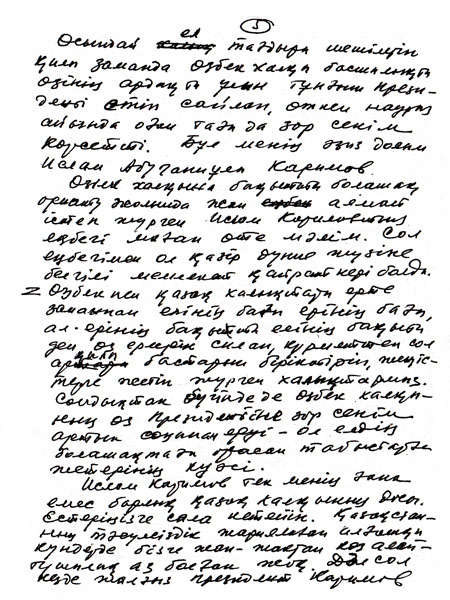 5
ел
Осындай тағдыры шешілетін
қилы заманда Өзбек халқы басшылыққа
өзінің ардақты ұлын тұңғыш прези-
денті етіп сайлап, өткен наурыз
айында оған тағы да зор сенім
көрсетті. Бұл менің әзіз досым
Ислам Абуганиұлы Каримов.
Өзбек халқына бақытты болашақ
орнату жолында жан аямай
істеп жүрген Ислам Каримовтың
еңбегі маған өте мәлім. Сол
еңбегімен ол қазір дүние жүзіне
белгілі мемлекет қайраткері болды.
Өзбек пен қазақ халықтары ерте
заманнан елінің бағы ерінің бағы,
ал ерінің бақыты елінің бақыты
деп, өз ерлерін сыйлап, құрметтеп сол
арқылы бастарын біріктіріп, жеңіс-
терге жетіп жүрген халықтармыз.
Сондықтан бүгінде өзбек халқы-
ның өз Президентіне зор сенім
артып соңынан еруі - ол елдің
болашақтағы орасан табыстарға
жетерінің куәсі.
Ислам Каримов тек менің ғана
емес барлық қазақ халқының досы.
Естеріңізге сала кетейік. Қазақстан-
ның тәуелсіздік жариялаған алғашқы
күндерде бізге жан-жақтан көз алай-
тушылық аз болған жоқ. Дәл сол
кезде жалғыз президент Каримов